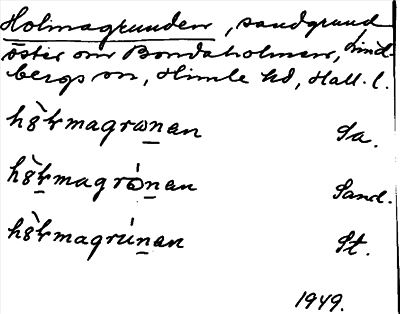 Holmagrunden, sandgrund
öster om Bondaholmen, Lind
bergs sn, Himle hd, Hall. l.
hòlmagrωnan Sa.
hòlmagrón̲an Sand.
hòlmagrún̲an St.
1949.